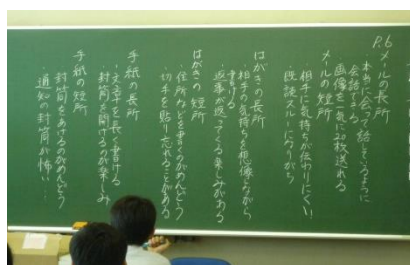 P.6
メールの長所
本当に会って話をしているように
会話できる
画像を一気に20枚送れる
メールの短所
相手に気持ちが伝わりにくい
既読スルーになりがち
はがきの長所
相手の気持ちを想像しながら
書ける
返事が返ってくる楽しみがある
はがきの短所
住所などを書くのがめんどう
切手を貼り忘れることがある
手紙の長所
文章を長く書ける
封筒を開けるのが楽しみ
手紙の短所
封筒をあけるのがめんどう
通知の封筒が怖い…